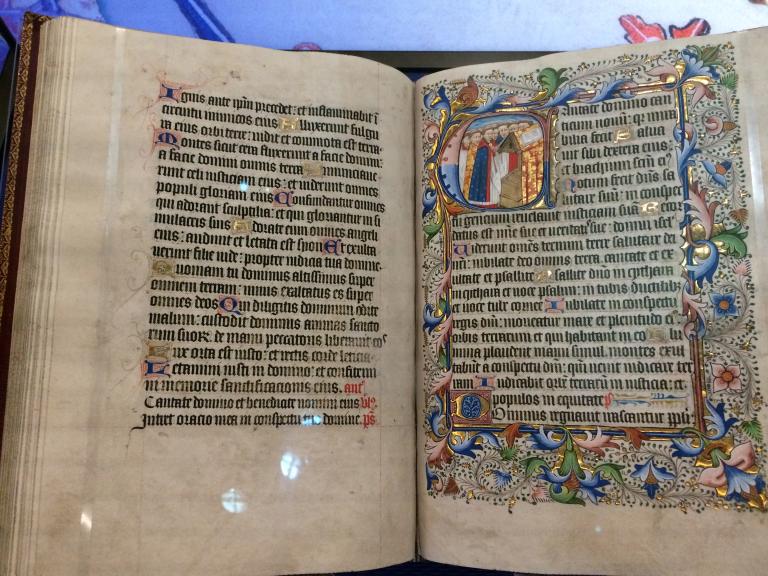 Ignis ante ipm precedet: et inflammabit i
circuitu inimicos eius Alluxerunt fulgu
ra eius orbi terre: uidit et commota est terra.
Montes sicut cera fluxerunt a facie domini:
a facie domini omnis terra Annunciaue
runt celi iusticiam eius: et uiderunt omnes
populi gloriam eius Confundantur omnes
qui adorant sculptilia: et qui gloriantur in si
mulacris suis Adorate eum omnes angeli
eius: audiuit et letata est syon Et exulta
uerunt filie iude: propter iudicia tua domine.
Quoniam tu dominus altissimus super
omnem terram: nimis exaltatus es super
omnes deos Qui diligitis dominum odite
malum: custodit dominus animas sancto
rum suorum de manu peccatoris liberauit eos
Lux orta est iusto: et rectis corde leticia.
Letamini iusti in domino: et confitemi
ni memorie sanctificacionis eius. ant
Cantate domino et benedicite nomini eius
Intret oracio mea in conspectu tuo domine. ps
Cantate domino can
ticum nouum: q mira
bilia fecit Salua
uit sibi dextera eius: et
brachium scm
Notum fecit dns sa
lutare suum: in conspec
tu gencium reuelauit iusticiam suam Re
cordatus est mie sue et ueritatis sue: domui isrl
Uiderunt omes termini terre salutare dei
nri: iubilate deo omnis terra, cantate et ex
ultate et psallite Psallite dno in cythara
in cythara et uoce psalmi: in tubis ductilib
et uoce tube cornee Iubilate in conspectu
regis dni: moueatur mare et plenitudo eius
orbis terrarum et qui habitant in eo Flu
mina plaudent manu simul, montes exul
tabunt a conspectu dni: qm uenit iudicare ter
ram Iudicabit orbe terrarum in iusticia: et
populos in equitate
Dominus regnauit irascantur ppli: